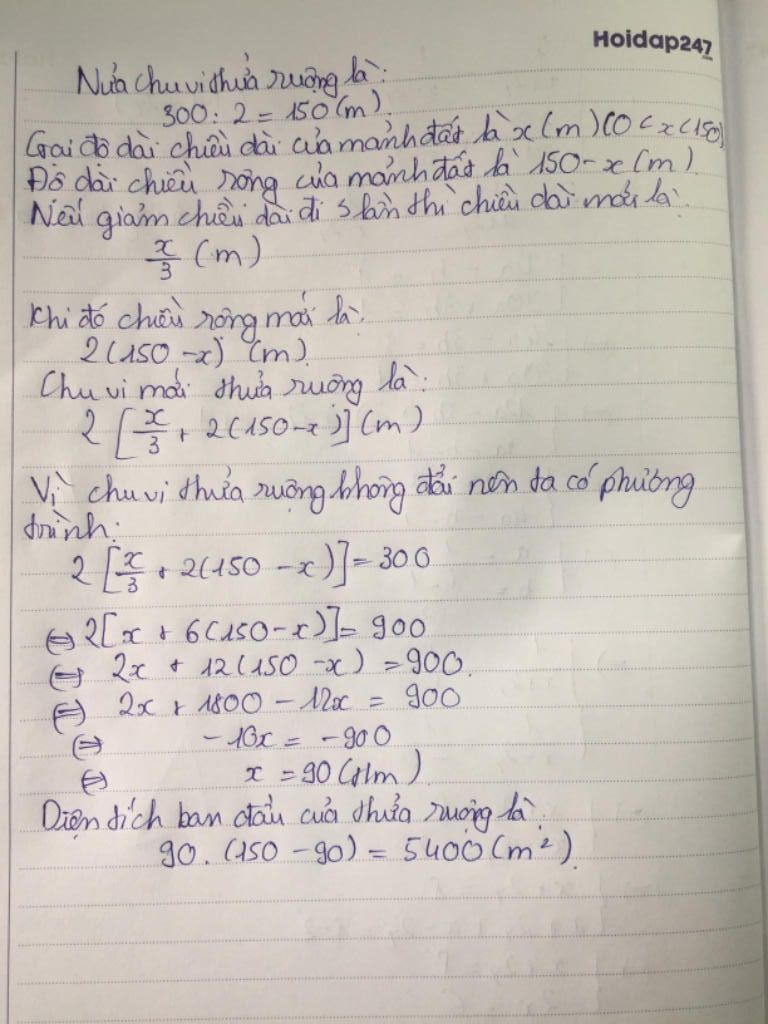 Hoidap247
Nửa chu vi thửa ruộng là:
300 : 2 = 150 (m).
Gọi độ dài chiều dài của mảnh đất là x (m) (0 < x < 150)
Độ dài chiều rộng của mảnh đất là 150 - x (m).
Nếu giảm chiều dài đi 3 lần thì chiều dài mới là:
x/3 (m)
Khi đó chiều rộng mới là:
2(150 - x) (m)
Chu vi mới thửa ruộng là:
2 [x/3 + 2(150 - x)] (m)
Vì chu vi thửa ruộng không đổi nên ta có phương
trình:
2 [x/3 + 2(150 - x)] = 300
⇔ 2[x + 6(150 - x)] = 900
⇔ 2x + 12(150 - x) = 900.
⇔ 2x + 1800 - 12x = 900
⇔ -10x = -900
⇔ x = 90 (tlm)
Diện tích ban đầu của thửa ruộng là:
90 . (150 - 90) = 5400 (m²).